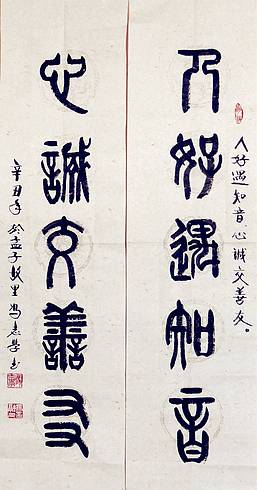 人好遇知音心诚交善友。
人好遇知音
心誠交善友
辛丑年於孟子故里